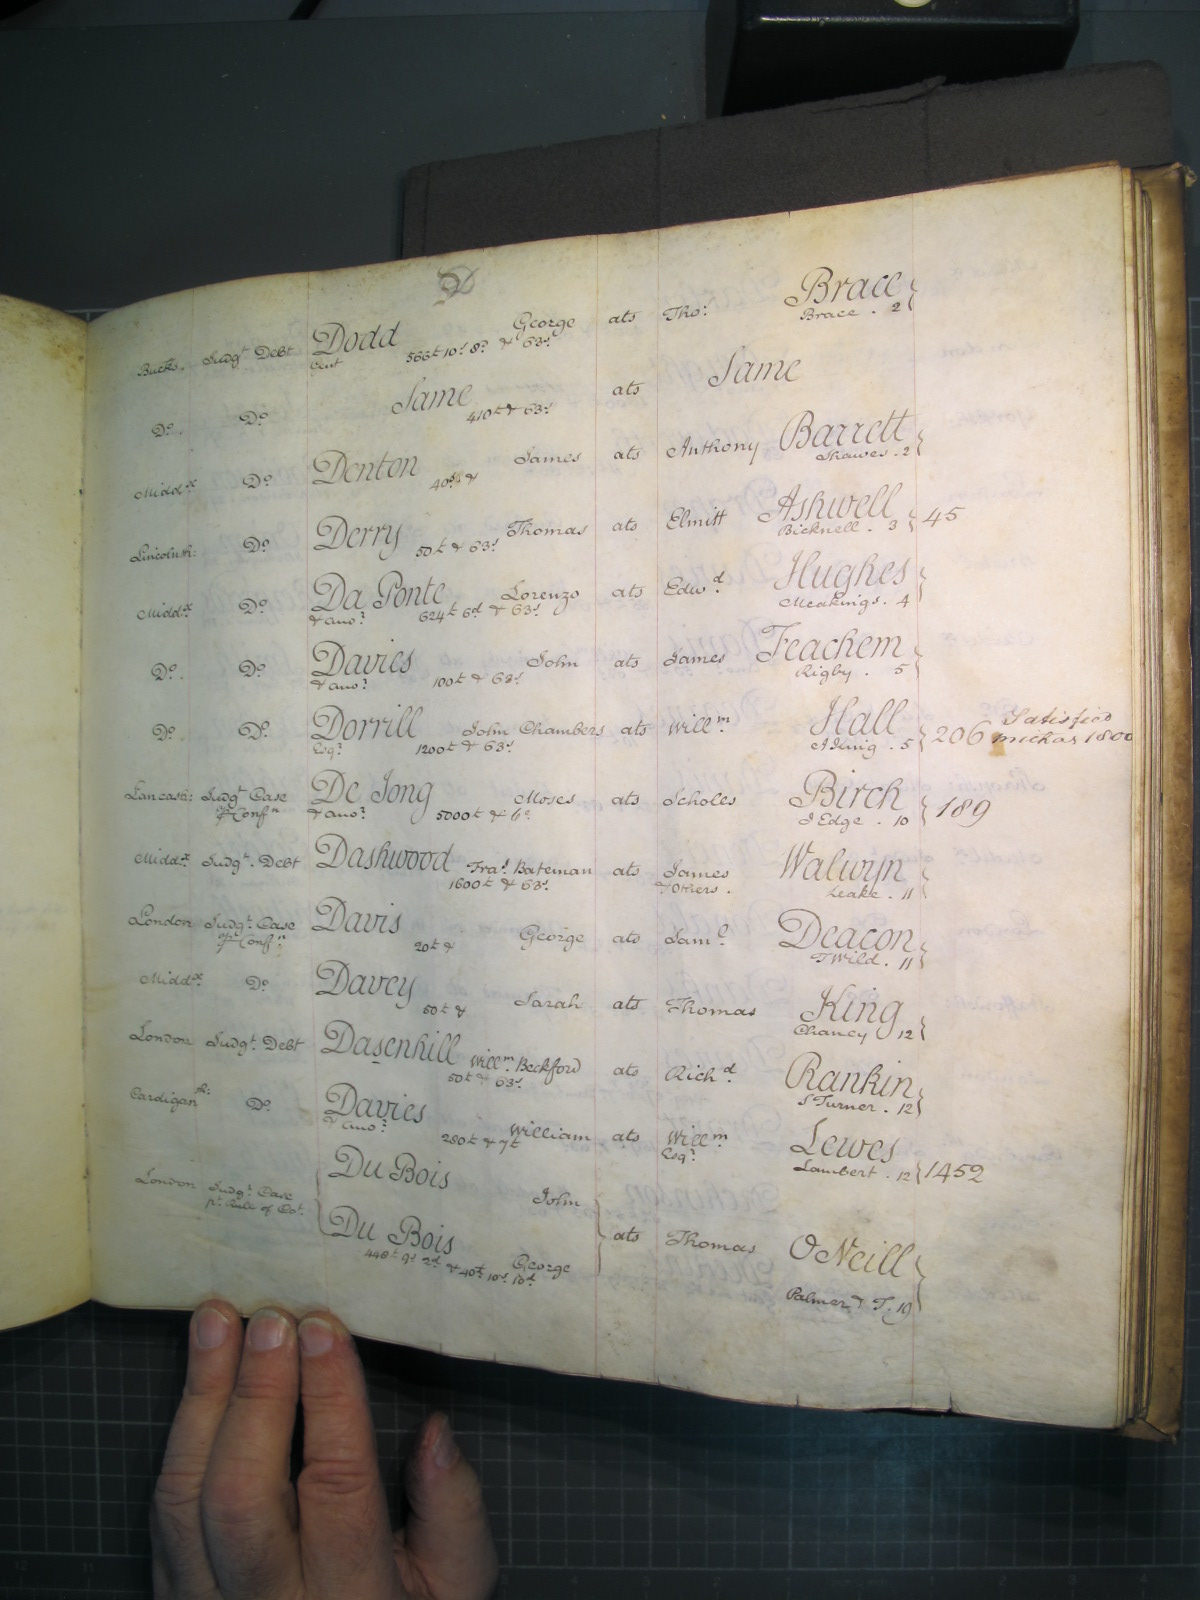 D
Bucks. Judgt Debt Dodd George ats Tho: Brace
Gent 566£ 10s 8d & 63s Brace . 2
Do. Do Same ats Same
410£ & 63s
Middx Do Denton James ats Anthony Barrett
Shawes . 2
Lincolnsh: Do Derry Thomas ats Elmitt Ashwell 45
50£ & 63s Bicknell . 3
Middx Do Da Ponte Lorenzo ats Edwd. Hughes
& ano: 624£ 6d & 63s Meakings . 4
Do. Do Davies John ats James Teachem
& ano: 100£ & 63s Rigby . 5
Do. Do. Dorrill John Chambers ats Willm. Hall 206 Satisfied
Esqr 1200£ & 63s J King . 5 Michas 1800
Lancash: Judgt Case De Jong Moses ats Scholes Birch 189
of Confn & ano: 5000£ & J Edge . 10
Middx Judgt. Debt Dashwood Fras. Bateman ats James Walwyn
1600£ & 63s. & others. Leake . 11
London Judgt. Case Davis George ats Saml Deacon
of Confn 20£ & T Wild . 11
Middx. Do Davey Sarah ats Thomas King
50£ & Chancy 12
London Judgt. Debt Dasenhill Willm. Beckford ats Richd. Rankin
50£ & 63s. S Turner . 12
Cardigansh: Do. Davies William ats Willm Lewes 1452
& ano: 280£ & 7£ Esqr Lambert . 12
London Judgt. Case Du Bois John
pr. Rule of Cot.
Du Bois George ats Thomas O Neill
448£ 9s 2d & 40£ 10s 10d. Palmer & T. 19